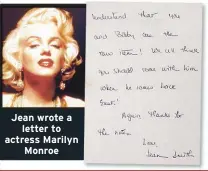 Understand that you
and Bobby are the
new item! We all think
you should come with him
when he comes back
East!
Again, thanks for
the note
Love
Jean Smith
Jean wrote a
letter to
actress Marilyn
Monroe